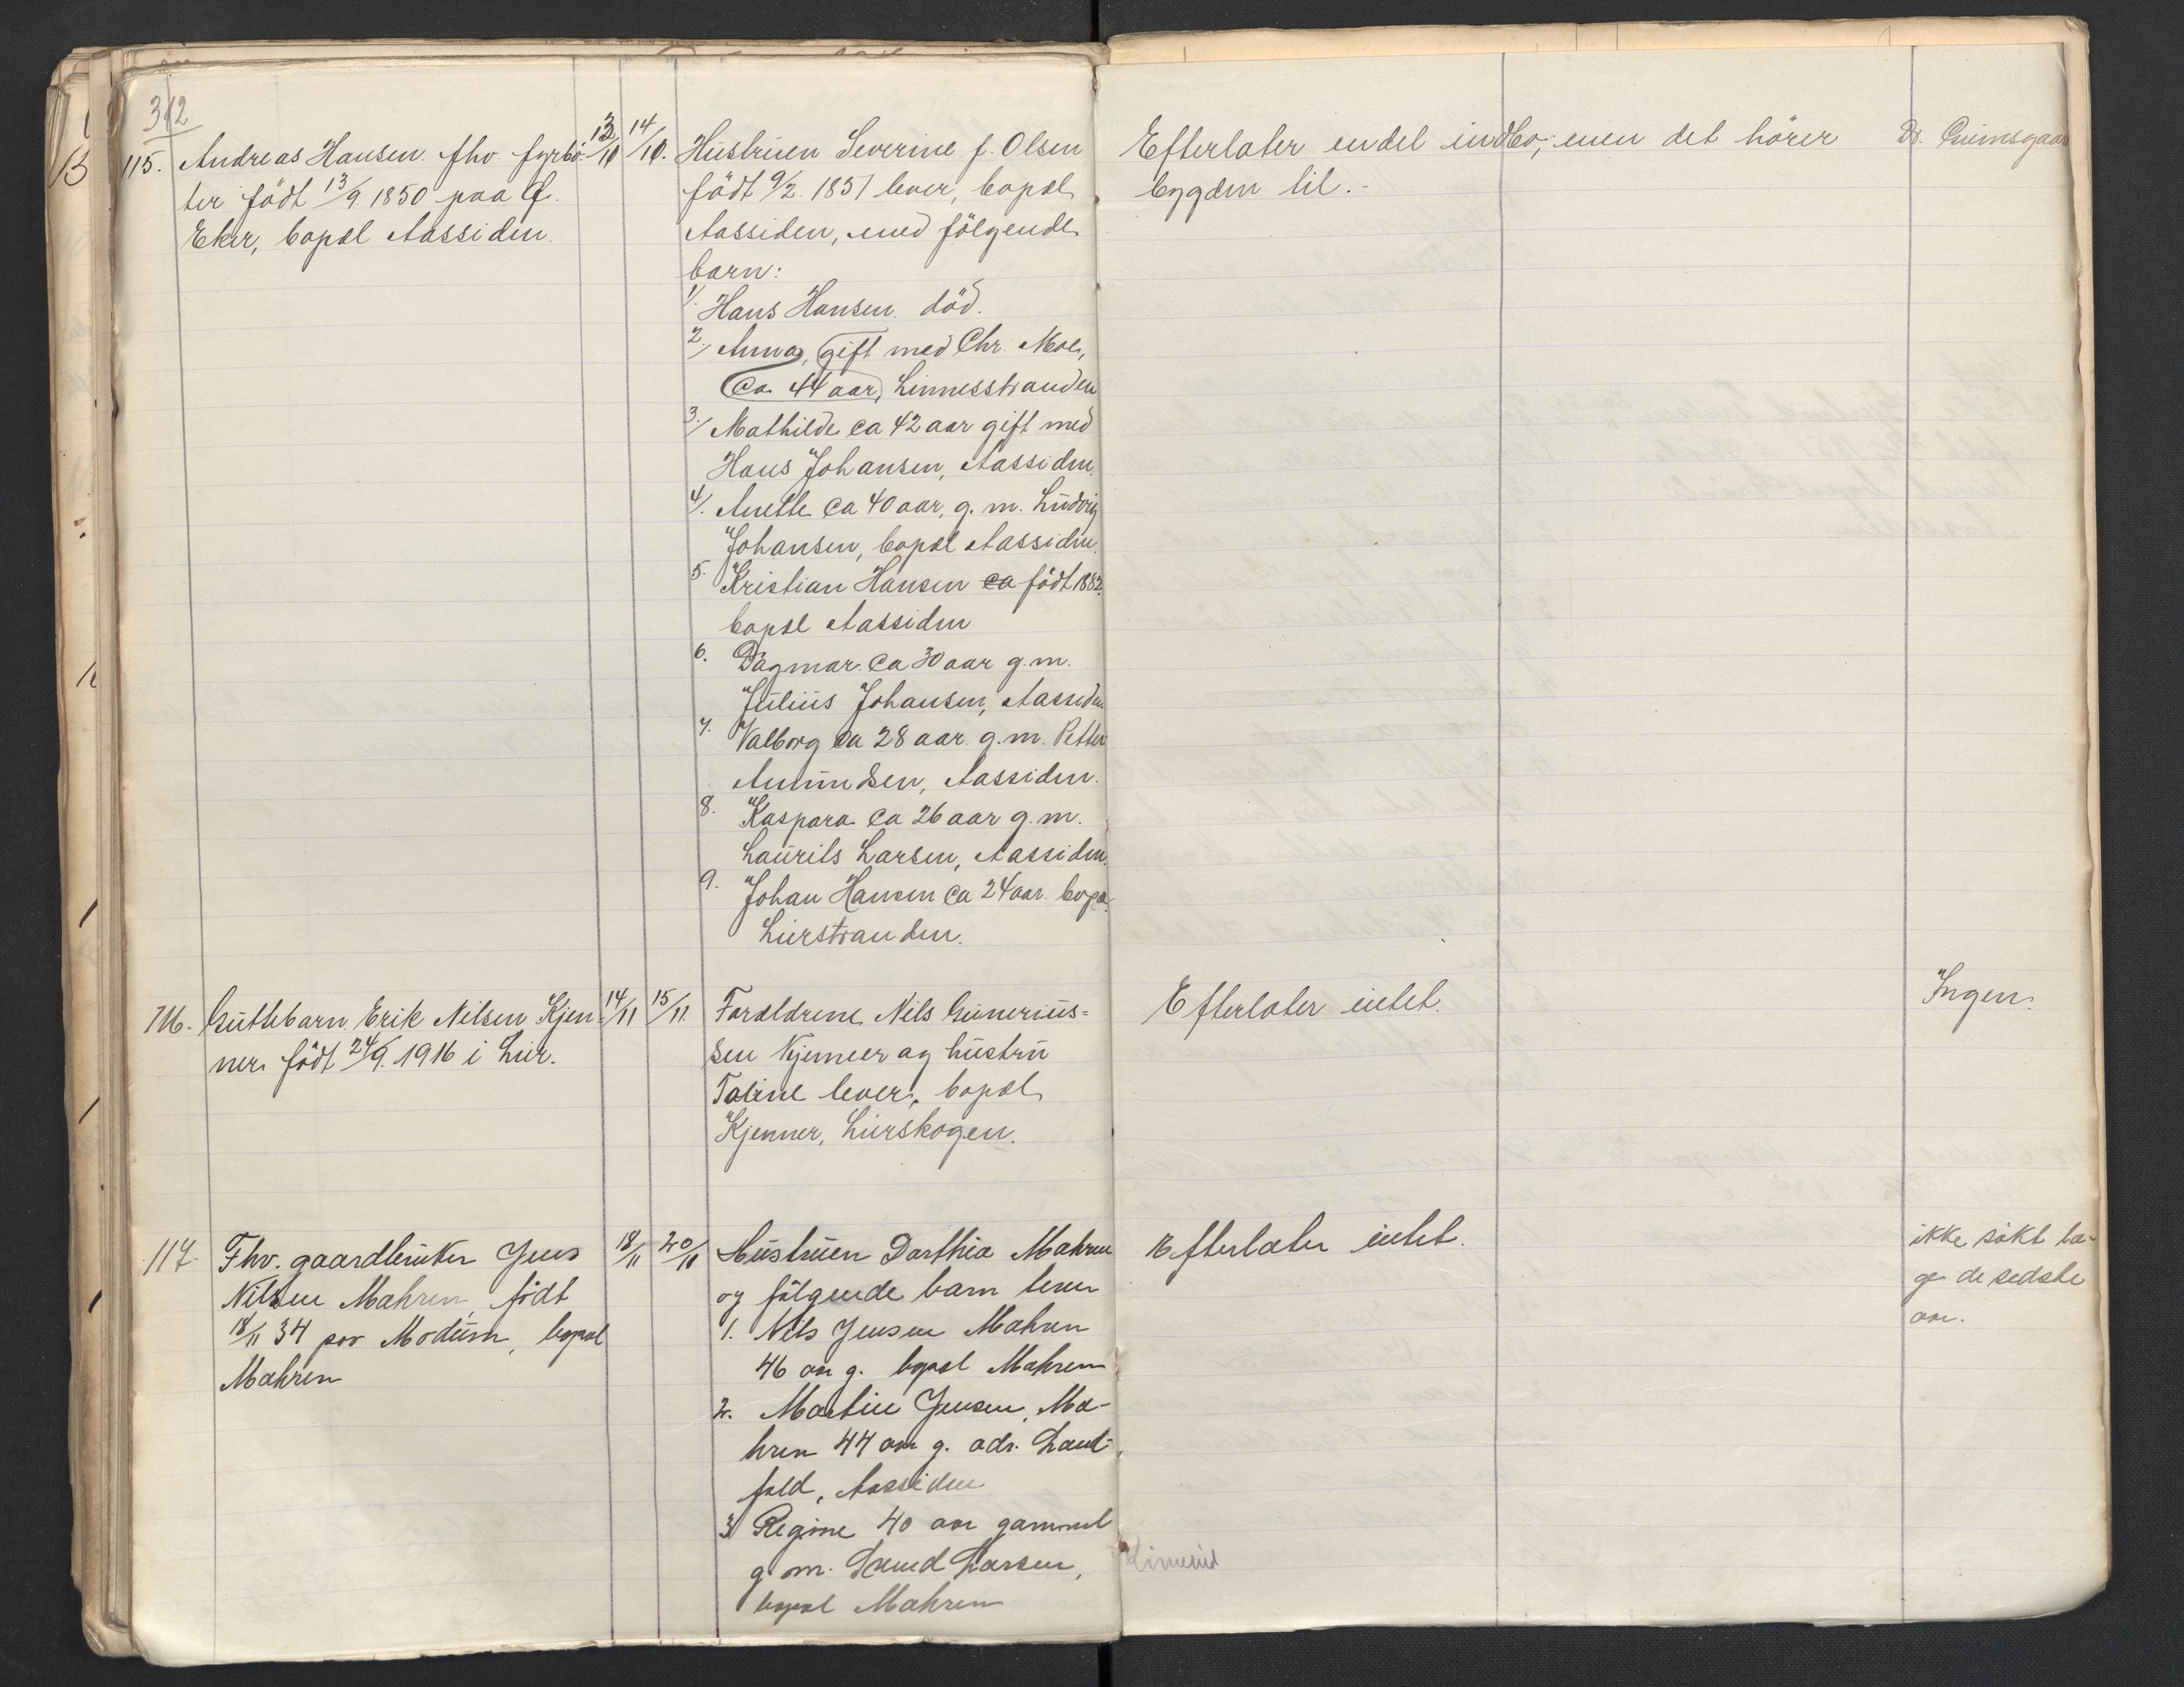 312
115. Andreas Hansen. fhv. fyrbö-
ter födt 13/9 1850 paa Ø.
Eker, bopæl Aassiden.
13/10 14/10.
Hustruen Severine f. Olsen
födt 9/2. 1851 lever, bopæl
Aassiden, med fölgende
barn:
1/. Hans Hansen död.
2/. Anna, gift med Chr. Moe,
ca 44 aar, Linnesstranden
3./ Mathilde ca 42 aar gift med
Hans Johansen, Aassiden.
4/. Anette ca 40 aar, g. m. Ludvig
Johansen, bopæl Aassiden.
5. Kristian Hansen ca födt 1882.
bopæl Aassiden
6. Dagmar ca 30 aar g.m.
Julius Johansen, Aassiden
7. Valborg ca 28 aar g.m. Petter
Amundsen, Aassiden.
8. Kaspara ca 26 aar g.m.
Laurits Larsen, Aassiden.
9. Johan Hansen ca 24 aar bopæ.
Lierstranden.
Efterlater endel indbo, men det hörer
bygden til.-
Dr.
116. Guttebarn Erik Nilsen Kjen-
ner födt 24/9. 1916 i Lier.
14/11 15/11.
Forældrene Nils Gunerius-
sen Kjenner og hustru
Taline lever, bopæl
Kjenner, Lierskogen.
Efterlater intet.
Ingen.
117. Fhv. gaardbruker Jens
Nilsen Mahren, födt
18/11 34 paa Modum, bopæl
Mahren
18/11 20/11
Hustruen Dorthea Mahren
og fölgende barn lever
1. Nils Jensen Mahren
46 aar g. bopæl Mahren
2. Martin Jensen Ma-
hren 44 aar g. adr.
Aassiden
3 Regine 40 aar gammel
g.m. Larsen,
bopæl Mahren
Efterlater intet.
ikke sökt læ-
ge de sidste
aar.